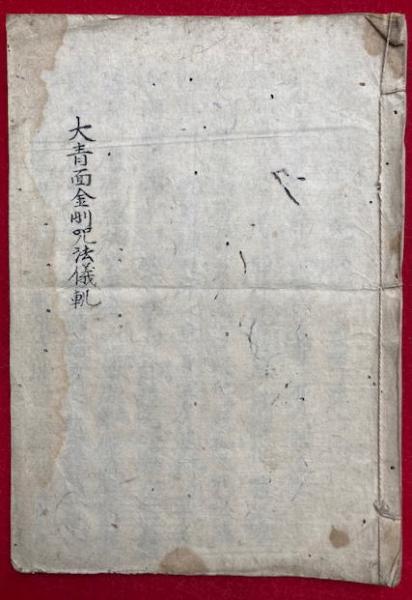 大青面金剛呪法儀軌